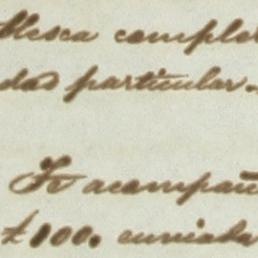 complet
dad particular.
Te acompañ
£ 100. enviada